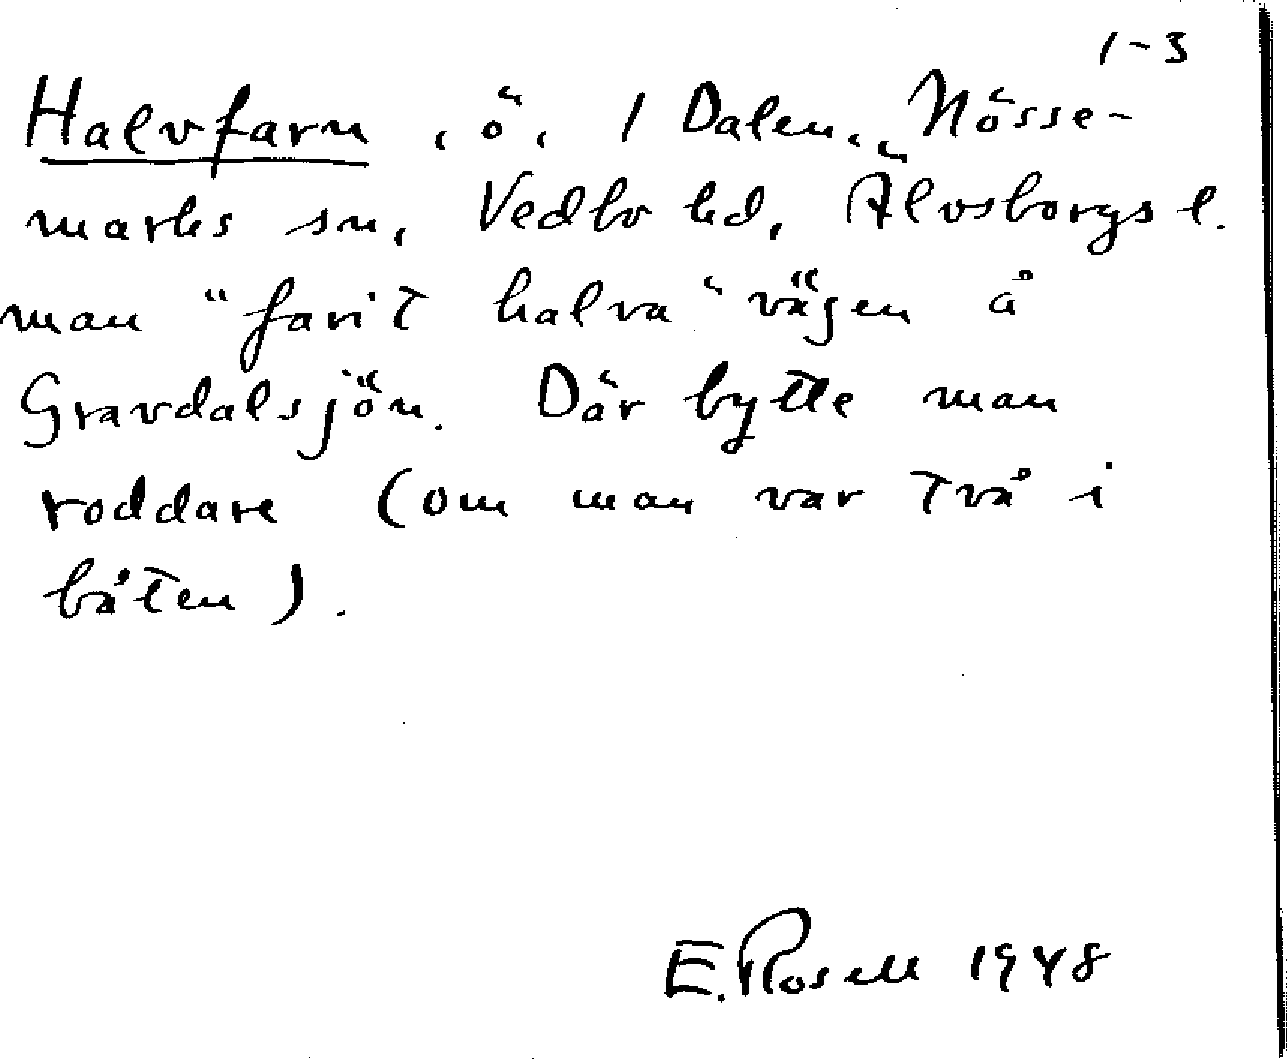 1-3
Halvfarn, ö, 1 Dalen, Nösse-
marks sn, Vedbo hd, Älvsborgs l.
man "farit halva" vägen å
Gravdalsjön. Där bytte man
roddare (om man var två i
båten).
E. Rosell 1948